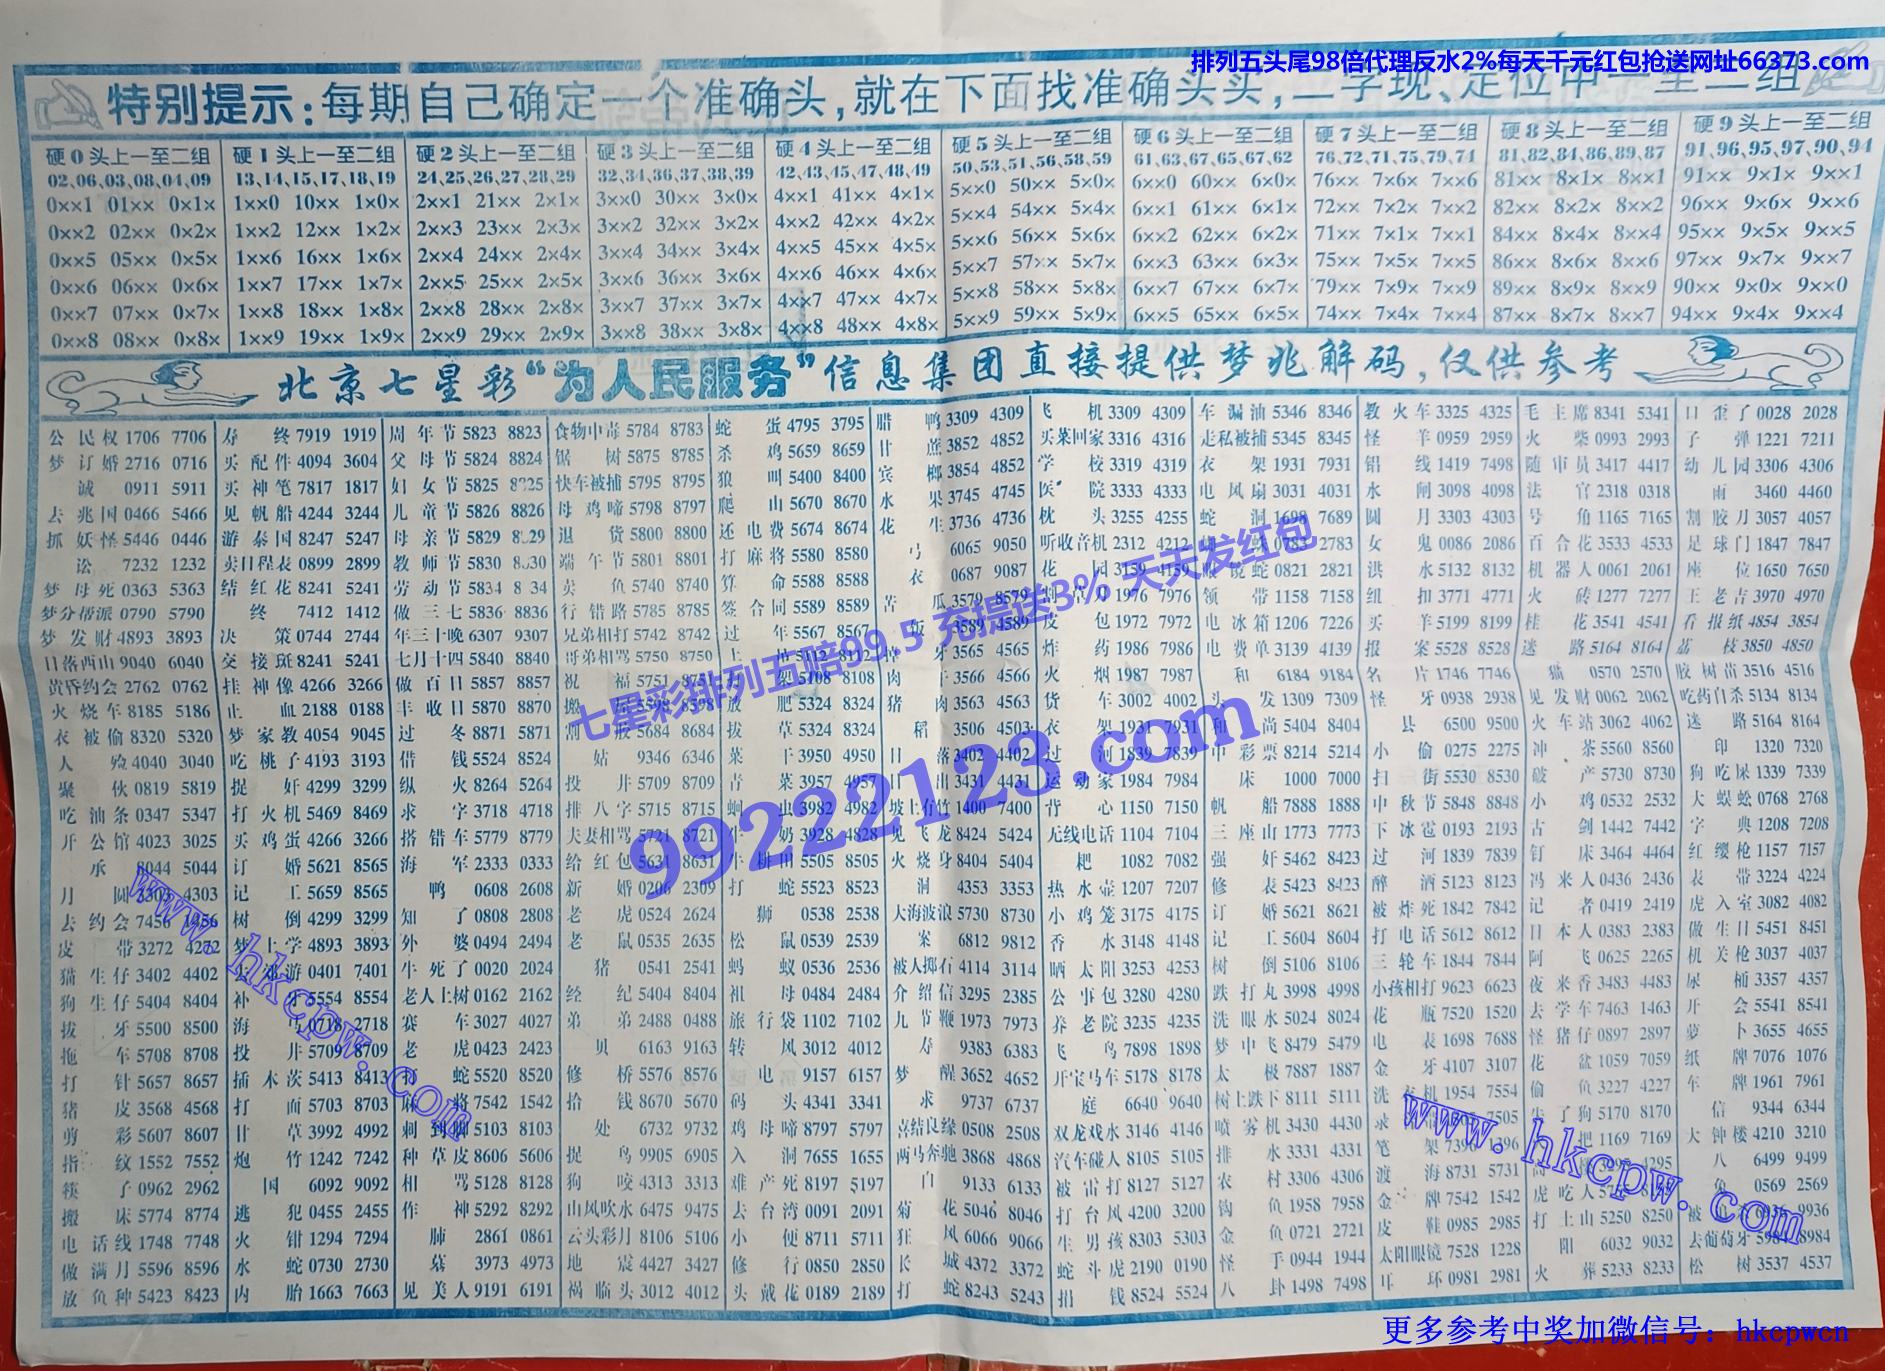 排列五头尾98倍代理反水2%每天千元红包抢送网址66373.com
特别提示:每期自己确定一个准确头,就在下面找准确头头,二字现、定位中一至二组
硬0头上一至二组 硬1头上一至二组 硬2头上一至二组 硬3头上一至二组 硬4头上一至二组 硬5头上一至二组 硬6头上一至二组 硬7头上一至二组 硬8头上一至二组 硬9头上一至二组
02,06,03,08,04,09 13,14,15,17,18,19 24,25,26,27,28,29 32,34,36,37,38,39 42,43,45,47,48,49 50,53,51,56,58,59 61,63,67,65,67,62 76,72,71,75,79,74 81,82,84,86,89,87 91,96,95,97,90,94
0××1 01×× 0×1× 1××0 10×× 1×0× 2××1 21×× 2×1× 3××0 30×× 3×0× 4××1 41×× 4×1× 5××0 50×× 5×0× 6××0 60×× 6×0× 76×× 7×6× 7××6 81×× 8×1× 8××1 91×× 9×1× 9××1
0××2 02×× 0×2× 1××2 12×× 1×2× 2××3 23×× 2×3× 3××2 32×× 3×2× 4××2 42×× 4×2× 5××4 54×× 5×4× 6××1 61×× 6×1× 72×× 7×2× 7××2 82×× 8×2× 8××2 96×× 9×6× 9××6
0××5 05×× 0×5× 1××6 16×× 1×6× 2××4 24×× 2×4× 3××4 34×× 3×4× 4××5 45×× 4×5× 5××6 56×× 5×6× 6××2 62×× 6×2× 71×× 7×1× 7××1 84×× 8×4× 8××4 95×× 9×5× 9××5
0××6 06×× 0×6× 1××7 17×× 1×7× 2××5 25×× 2×5× 3××6 36×× 3×6× 4××6 46×× 4×6× 5××7 57×× 5×7× 6××3 63×× 6×3× 75×× 7×5× 7××5 86×× 8×6× 8××6 97×× 9×7× 9××7
0××7 07×× 0×7× 1××8 18×× 1×8× 2××8 28×× 2×8× 3××7 37×× 3×7× 4××7 47×× 4×7× 5××8 58×× 5×8× 6××7 67×× 6×7× 79×× 7×9× 7××9 89×× 8×9× 8××9 90×× 9×0× 9××0
0××8 08×× 0×8× 1××9 19×× 1×9× 2××9 29×× 2×9× 3××8 38×× 3×8× 4××8 48×× 4×8× 5××9 59×× 5×9× 6××5 65×× 6×5× 74×× 7×4× 7××4 87×× 8×7× 8××7 94×× 9×4× 9××4
北京七星彩“为人民服务”信息集团直接提供梦兆解码,仅供参考
公民权 1706 7706
梦订婚 2716 0716
诚 0911 5911
去兆国 0466 5466
抓妖怪 5446 0446
讼 7232 1232
梦母死 0363 5363
梦分帮派 0790 5790
梦发财 4893 3893
日落西山 9040 6040
黄昏约会 2762 0762
火烧车 8185 5186
衣被偷 8320 5320
人殓 4040 3040
聚伙 0819 5819
吃油条 0347 5347
开公馆 4023 3025
承 8044 5044
月圆 3303 4303
去约会 7456 1456
皮带 3272 4272
猫生仔 3402 4402
狗生仔 5404 8404
拔牙 5500 8500
拖车 5708 8708
打针 5657 8657
猪皮 3568 4568
剪彩 5607 8607
指纹 1552 7552
筷子 0962 2962
搬床 5774 8774
电话线 1748 7748
做满月 5596 8596
放鱼种 5423 8423
寿终 7919 1919
买配件 4094 3604
买神笔 7817 1817
见帆船 4244 3244
游泰国 8247 5247
卖日程表 0899 2899
结红花 8241 5241
终 7412 1412
决策 0744 2744
交接班 8241 5241
挂神像 4266 3266
止血 2188 0188
梦家教 4054 9045
吃桃子 4193 3193
捉奸 4299 3299
打火机 5469 8469
买鸡蛋 4266 3266
订婚 5621 8565
记工 5659 8565
树倒 4299 3299
梦上学 4893 3893
游 0401 7401
补牙 5554 8554
海马 0718 2718
投井 5709 8709
插木茨 5413 8413
打面 5703 8703
甘草 3992 4992
炮竹 1242 7242
国 6092 9092
逃犯 0455 2455
火钳 1294 7294
水蛇 0730 2730
内胎 1663 7663
周年节 5823 8823
父母节 5824 8824
妇女节 5825 8825
儿童节 5826 8826
母亲节 5829 8829
教师节 5830 8830
劳动节 5834 8834
做三七 5836 8836
年三十晚 6307 9307
七月十四 5840 8840
做百日 5857 8857
丰收日 5870 8870
过冬 8871 5871
借钱 5524 8524
纵火 8264 5264
求字 3718 4718
搭错车 5779 8779
海军 2333 0333
鸭 0608 2608
知了 0808 2808
外婆 0494 2494
牛死了 0020 2024
老人上树 0162 2162
赛车 3027 4027
老虎 0423 2423
蛇 5520 8520
将 7542 1542
刺到脚 5103 8103
种草皮 8606 5606
相骂 5128 8128
作神 5292 8292
肺 2861 0861
墓 3973 4973
见美人 9191 6191
食物中毒 5784 8783
锯树 5875 8785
快车被捕 5795 8795
母鸡啼 5798 8797
退货 5800 8800
端午节 5801 8801
卖鱼 5740 8740
行错路 5785 8785
兄弟相打 5742 8742
哥弟相骂 5750 8750
祝福 5751 8751
搬 5598 8598
割 5684 8684
姑 9346 6346
投井 5709 8709
排八字 5715 8715
夫妻相骂 5721 8721
给红包 5631 8631
新婚 0206 2309
老虎 0524 2624
老鼠 0535 2635
猪 0541 2541
经纪 5404 8404
弟弟 2488 0488
贝 6163 9163
修桥 5576 8576
拾钱 8670 5670
处 6732 9732
捉鸟 9905 6905
狗咬 4313 3313
山风吹水 6475 9475
云头彩月 8106 5106
地震 4427 3427
祸临头 3012 4012
蛇蛋 4795 3795
杀鸡 5659 8659
狼叫 5400 8400
爬山 5670 8670
还电费 5674 8674
打麻将 5580 8580
算命 5588 8588
签合同 5589 8589
过年 5567 8567
上 5112 8112
架 5108 8108
放肥 5324 8324
拔草 5324 8324
菜干 3950 4950
青菜 3957 4957
蛔虫 3982 4982
牛奶 3928 4828
牛耕田 5505 8505
打蛇 5523 8523
狮 0538 2538
松鼠 0539 2539
蚂蚁 0536 2536
祖母 0484 2484
旅行袋 1102 7102
转风 3012 4012
电 9157 6157
码头 4341 3341
鸡母啼 8797 5797
入洞 7655 1655
难产死 8197 5197
去台湾 0091 2091
小便 8711 5711
修行 0850 2850
头戴花 0189 2189
腊鸭 3309 4309
甘蔗 3852 4852
宾榔 3854 4852
水果 3745 4745
花生 3736 4736
弓 6065 9050
衣 0687 9087
苦瓜 3579 8579
饭 3589 4589
牙 3565 4565
肉干 3566 4566
猪肉 3563 4563
稻 3506 4503
日落 3402 4402
日出 3431 4431
坡上有竹 1400 7400
见飞龙 8424 5424
火烧身 8404 5404
洞 4353 3353
大海波浪 5730 8730
案 6812 9812
被人掷石 4114 3114
介绍信 3295 2385
九节鞭 1973 7973
寿 9383 6383
梦醒 3652 4652
求 9737 6737
喜结良缘 0508 2508
两马奔驰 3868 4868
白 9133 6133
菊花 5046 8046
狂风 6066 9066
长城 4372 3372
打蛇 8243 5243
飞机 3309 4309
买菜回家 3316 4316
学校 3319 4319
医院 3333 4333
枕头 3255 4255
听收音机 2312 4212
花园 3159 4159
割草刀 1976 7976
皮包 1972 7972
炸药 1986 7986
火烟 1987 7987
货车 3002 4002
衣架 1931 7931
过河 1839 7839
运动家 1984 7984
背心 1150 7150
无线电话 1104 7104
耙 1082 7082
热水壶 1207 7207
小鸡笼 3175 4175
香水 3148 4148
晒太阳 3253 4253
公事包 3280 4280
养老院 3235 4235
飞鸟 7898 1898
开宝马车 5178 8178
庭 6640 9640
双龙戏水 3146 4146
汽车碰人 8105 5105
被雷打 8127 5127
打台风 4200 3200
生男孩 8303 5303
蛇斗虎 2190 0190
捐钱 8524 5524
车漏油 5346 8346
走私被捕 5345 8345
衣架 1931 7931
电风扇 3031 4031
蛇洞 1698 7689
蜘蛛 0783 2783
眼镜蛇 0821 2821
领带 1158 7158
电冰箱 1206 7226
电费单 3139 4139
和 6184 9184
头发 1309 7309
和尚 5404 8404
中彩票 8214 5214
床 1000 7000
帆船 7888 1888
三座山 1773 7773
强奸 5462 8423
修表 5423 8423
订婚 5621 8621
记工 5604 8604
树倒 5106 8106
跌打丸 3998 4998
洗眼水 5024 8024
梦中飞 8479 5479
太极 7887 1887
树上跌下 8111 5111
喷雾机 3430 4430
排水 3331 4331
农村 3306 4306
钩鱼 1958 7958
金鱼 0721 2721
怪手 0944 1944
八卦 1498 7498
教火车 3325 4325
怪羊 0959 2959
铝线 1419 7498
水闸 3098 4098
圆月 3303 4303
女鬼 0086 2086
洪水 5132 8132
纽扣 3771 4771
买羊 5199 8199
报案 5528 8528
名片 1746 7746
怪牙 0938 2938
县 6500 9500
小偷 0275 2275
扫街 5530 8530
中秋节 5848 8848
下冰雹 0193 2193
过河 1839 7839
醉酒 5123 8123
被炸死 1842 7842
打电话 5612 8612
三轮车 1844 7844
小孩相打 9623 6623
花瓶 7520 1520
电表 1698 7688
金牙 4107 3107
洗衣机 1954 7554
录 7505
笔架 7396 1396
渡海 8731 5731
金牌 7542 1542
皮鞋 0985 2985
太阳眼镜 7528 1228
耳环 0981 2981
毛主席 8341 5341
火柴 0993 2993
随审员 3417 4417
法官 2318 0318
号角 1165 7165
百合花 3533 4533
机器人 0061 2061
火砖 1277 7277
桂花 3541 4541
迷路 5164 8164
猫 0570 2570
见发财 0062 2062
火车站 3062 4062
冲茶 5560 8560
破产 5730 8730
小鸡 0532 2532
古剑 1442 7442
钉床 3464 4464
冯来人 0436 2436
记者 0419 2419
日本人 0383 2383
阿飞 0625 2265
夜来香 3483 4483
去学车 7463 1463
怪猪仔 0897 2897
花盆 1059 7059
偷鱼 3227 4227
失了狗 5170 8170
把 1169 7169
4295
虎吃人
打上山 5250 8250
阳 6032 9032
火葬 5233 8233
口歪了 0028 2028
子弹 1221 7211
幼儿园 3306 4306
雨 3460 4460
割胶刀 3057 4057
足球门 1847 7847
座位 1650 7650
王老吉 3970 4970
看报纸 4854 3854
荔枝 3850 4850
胶树苗 3516 4516
吃药自杀 5134 8134
迷路 5164 8164
印 1320 7320
狗吃屎 1339 7339
大蜈蚣 0768 2768
字典 1208 7208
红缨枪 1157 7157
表带 3224 4224
虎入室 3082 4082
做生日 5451 8451
机关枪 3037 4037
尿桶 3357 4357
开会 5541 8541
萝卜 3655 4655
纸牌 7076 1076
车牌 1961 7961
信 9344 6344
大钟楼 4210 3210
八 6499 9499
鱼 0569 2569
被 9936
去葡萄牙 5984 8984
松树 3537 4537
七星彩排列五赔99.5 充提送3% 天天发红包
99222123.com
www.hkcpw.com
www.hkcpw.com
更多参考中奖加微信号：hkcpwcn